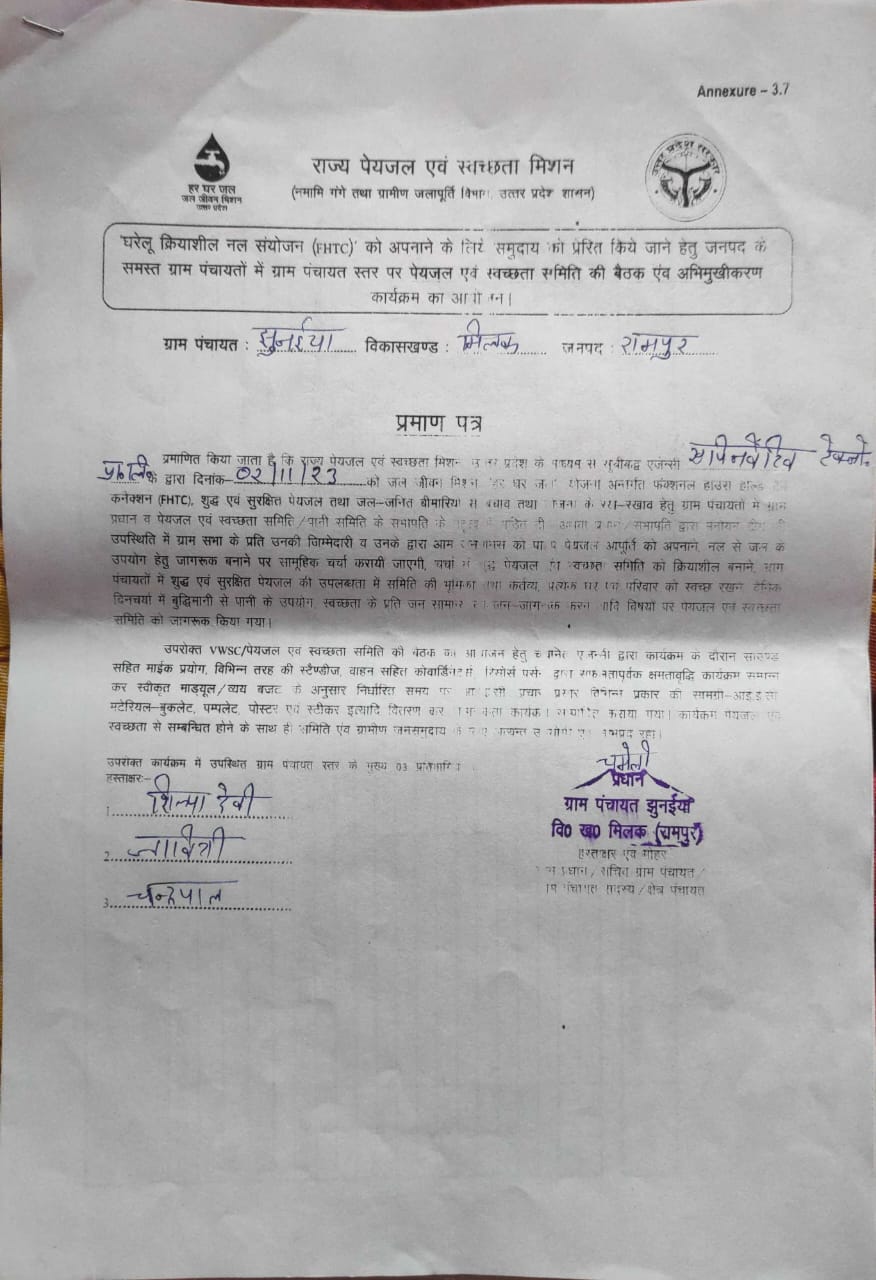 Annexure – 3.7
हर घर जल
जल जीवन मिशन
उत्तर प्रदेश
राज्य पेयजल एवं स्वच्छता मिशन
(नमामि गंगे तथा ग्रामीण जलापूर्ति विभाग, उत्तर प्रदेश शासन)
उत्तर प्रदेश सरकार
'घरेलू क्रियाशील नल संयोजन (FHTC)' को अपनाने के लिये समुदाय को प्रेरित किये जाने हेतु जनपद के
समस्त ग्राम पंचायतों में ग्राम पंचायत स्तर पर पेयजल एवं स्वच्छता समिति की बैठक एंव अभिमुखीकरण
कार्यक्रम का आयोजन।
ग्राम पंचायत : झुनईया विकासखण्ड : मिलक जनपद : रामपुर
प्रमाण पत्र
प्रमाणित किया जाता है कि राज्य पेयजल एवं स्वच्छता मिशन उत्तर प्रदेश के माध्यम से सूचीबद्ध एजेन्सी
के द्वारा दिनांक- 02/11/23 को जल जीवन मिशन हर घर जल योजना अन्तर्गत फंक्शनल हाउस होल्ड टैप
कनेक्शन (FHTC), शुद्ध एवं सुरक्षित पेयजल तथा जल-जनित बीमारियों से बचाव तथा के रख-रखाव हेतु ग्राम पंचायतों में ग्राम
प्रधान व पेयजल एवं स्वच्छता समिति/पानी समिति के सभापति के प्रधान/सभापति द्वारा
उपस्थिति में ग्राम सभा के प्रति उनकी जिम्मेदारी व उनके द्वारा आम को पेयजल आपूर्ति को अपनाने, नल से जल के
उपयोग हेतु जागरूक बनाने पर सामूहिक चर्चा करायी जाएगी, चर्चा में पेयजल एवं स्वच्छता समिति को क्रियाशील बनाने, ग्राम
पंचायतों में शुद्ध एवं सुरक्षित पेयजल की उपलब्धता में समिति की भूमिका तथा कर्तव्य, प्रत्येक घर एवं परिवार को स्वच्छ रखने दैनिक
दिनचर्या में बुद्धिमानी से पानी के उपयोग, स्वच्छता के प्रति जन सामान्य जन-जागरूक करने आदि विषयों पर पेयजल एवं स्वच्छता
समिति को जागरूक किया गया।
उपरोक्त VWSC/पेयजल एवं स्वच्छता समिति की बैठक का आयोजन हेतु एजेन्सी द्वारा कार्यक्रम के दौरान साउण्ड
सहित माईक प्रयोग, विभिन्न तरह की स्टैण्डीज, वाहन सहित कोवार्डिनेटर रिसोर्स पर्सन द्वारा सफलतापूर्वक क्षमतावृद्धि कार्यक्रम सम्पन्न
कर स्वीकृत माड्यूल/व्यय बजट के अनुसार निर्धारित समय पर आईईसी प्रचार प्रसार विभिन्न प्रकार की सामग्री-आई.ई.सी
मटेरियल-बुकलेट, पम्पलेट, पोस्टर एवं स्टीकर इत्यादि वितरण कर कराया गया। कार्यक्रम पेयजल एवं
स्वच्छता से सम्बन्धित होने के साथ ही समिति एंव ग्रामीण जनसमुदाय के लाभप्रद रहा।
उपरोक्त कार्यक्रम में उपस्थित ग्राम पंचायत स्तर के मुख्य 03 प्रतिभागियों के
हस्ताक्षर:-
1. शिल्पा देवी
2.
3. चन्द्रपाल
चमेली
प्रधान
ग्राम पंचायत झुनईया
वि0 ख0 मिलक (रामपुर)
हस्ताक्षर एवं मोहर
ग्राम प्रधान/सचिव ग्राम पंचायत/
पंचायत सदस्य/क्षेत्र पंचायत